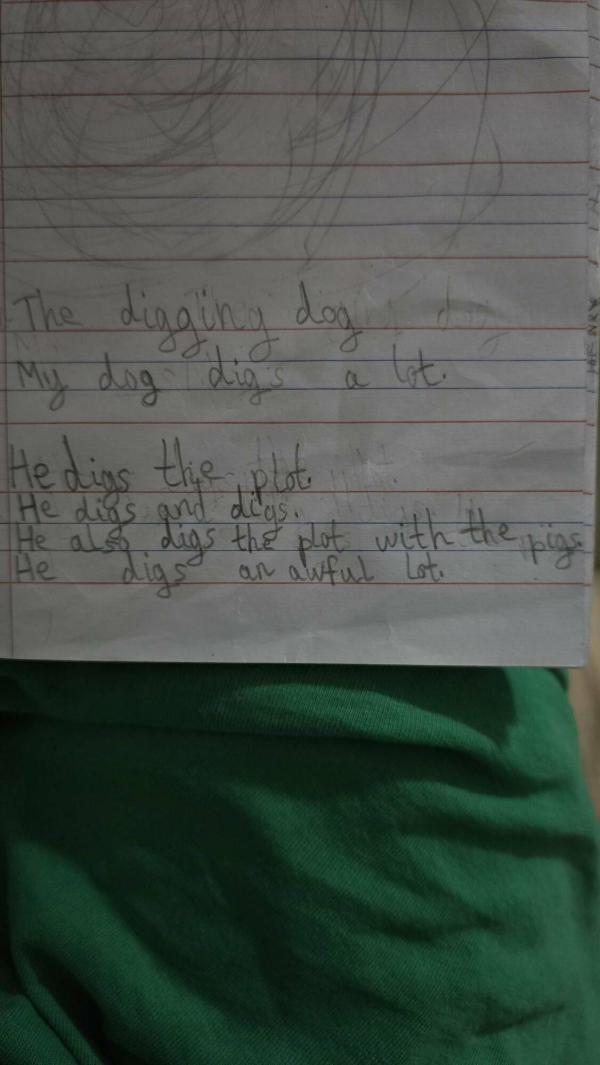 The digging dog
My dog digs a lot.
He digs the plot.
He digs and digs.
He also digs the plot with the pigs
He digs an awful lot.